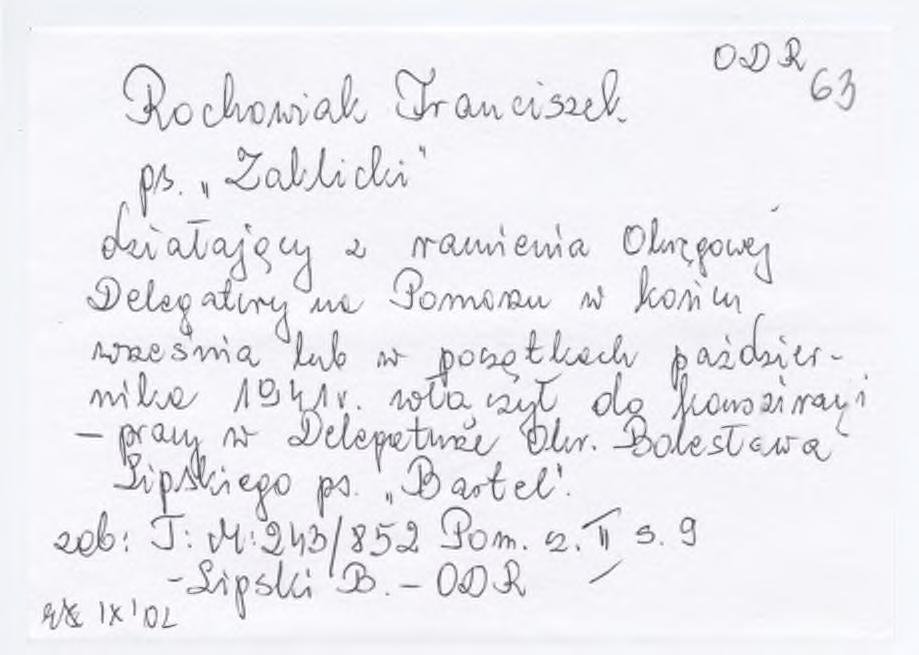 ODR
63
Rochowiak Franciszek
ps. „Zaklicki"
działający z ramienia Okręgowej
Delegatury na Pomorzu w końcu
września lub w początkach paździer-
nika 1941r. włączył do konspiracji
– pracy w Delegaturze Okr. Bolesława
Lipskiego ps. „Bartel".
zob: T: M: 243/852 Pom. cz. II s. 9
- Lipski B. – ODR
IX'02